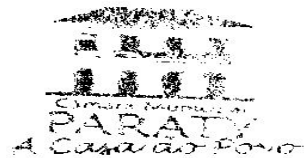 Câmara Municipal
PARATY
A Casa do Povo